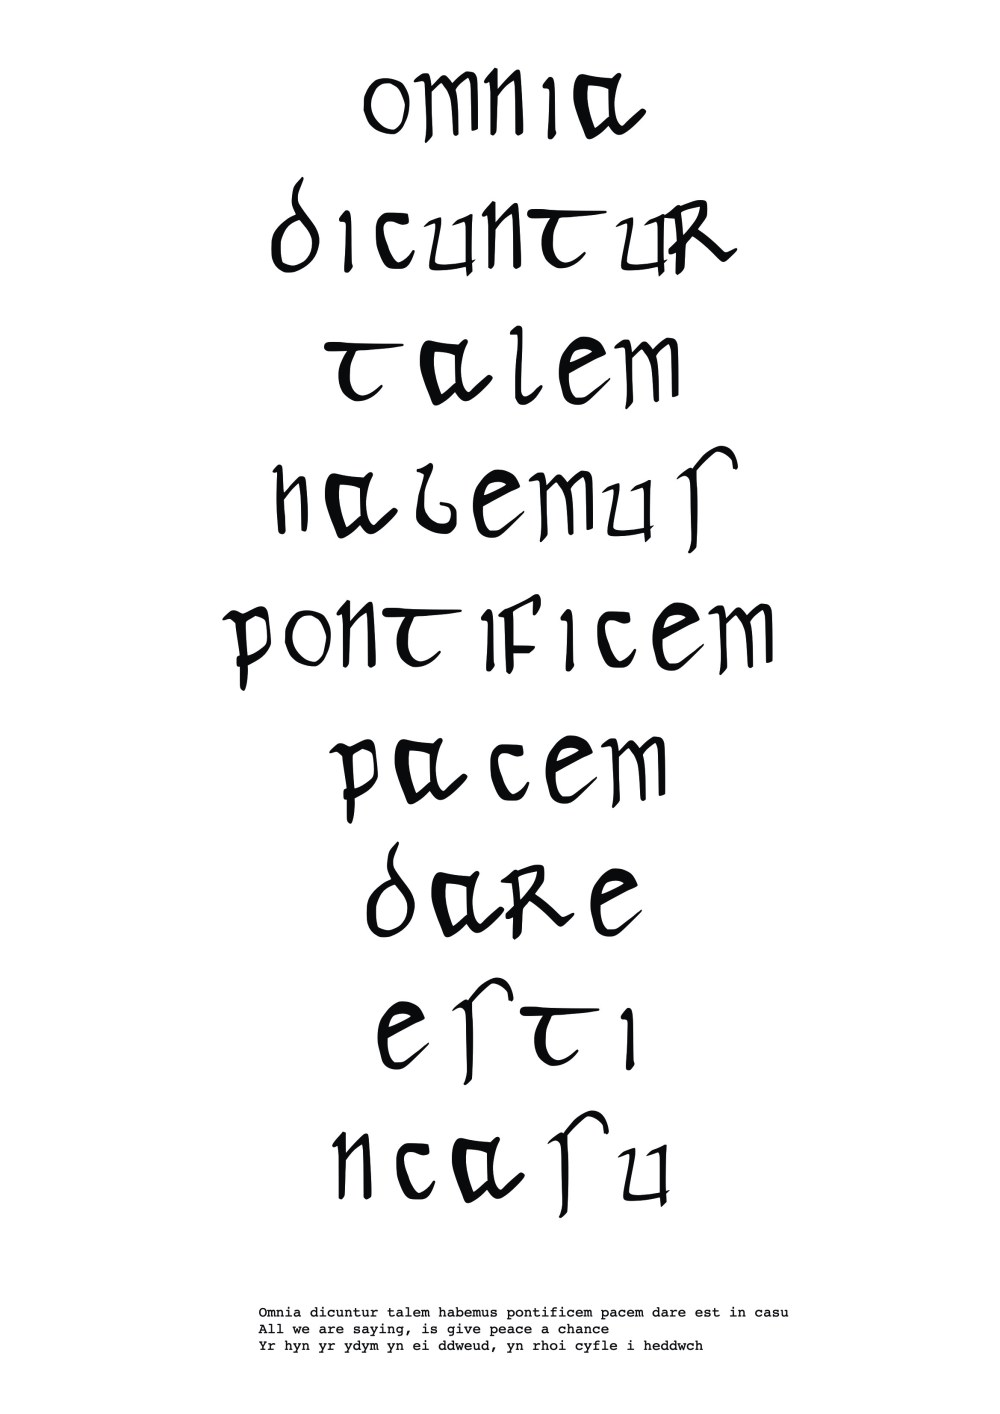 omnia
dicuntur
talem
habemuſ
pontificem
pacem
dare
eſti
ncaſu
Omnia dicuntur talem habemus pontificem pacem dare est in casu
All we are saying, is give peace a chance
Yr hyn yr ydym yn ei ddweud, yn rhoi cyfle i heddwch